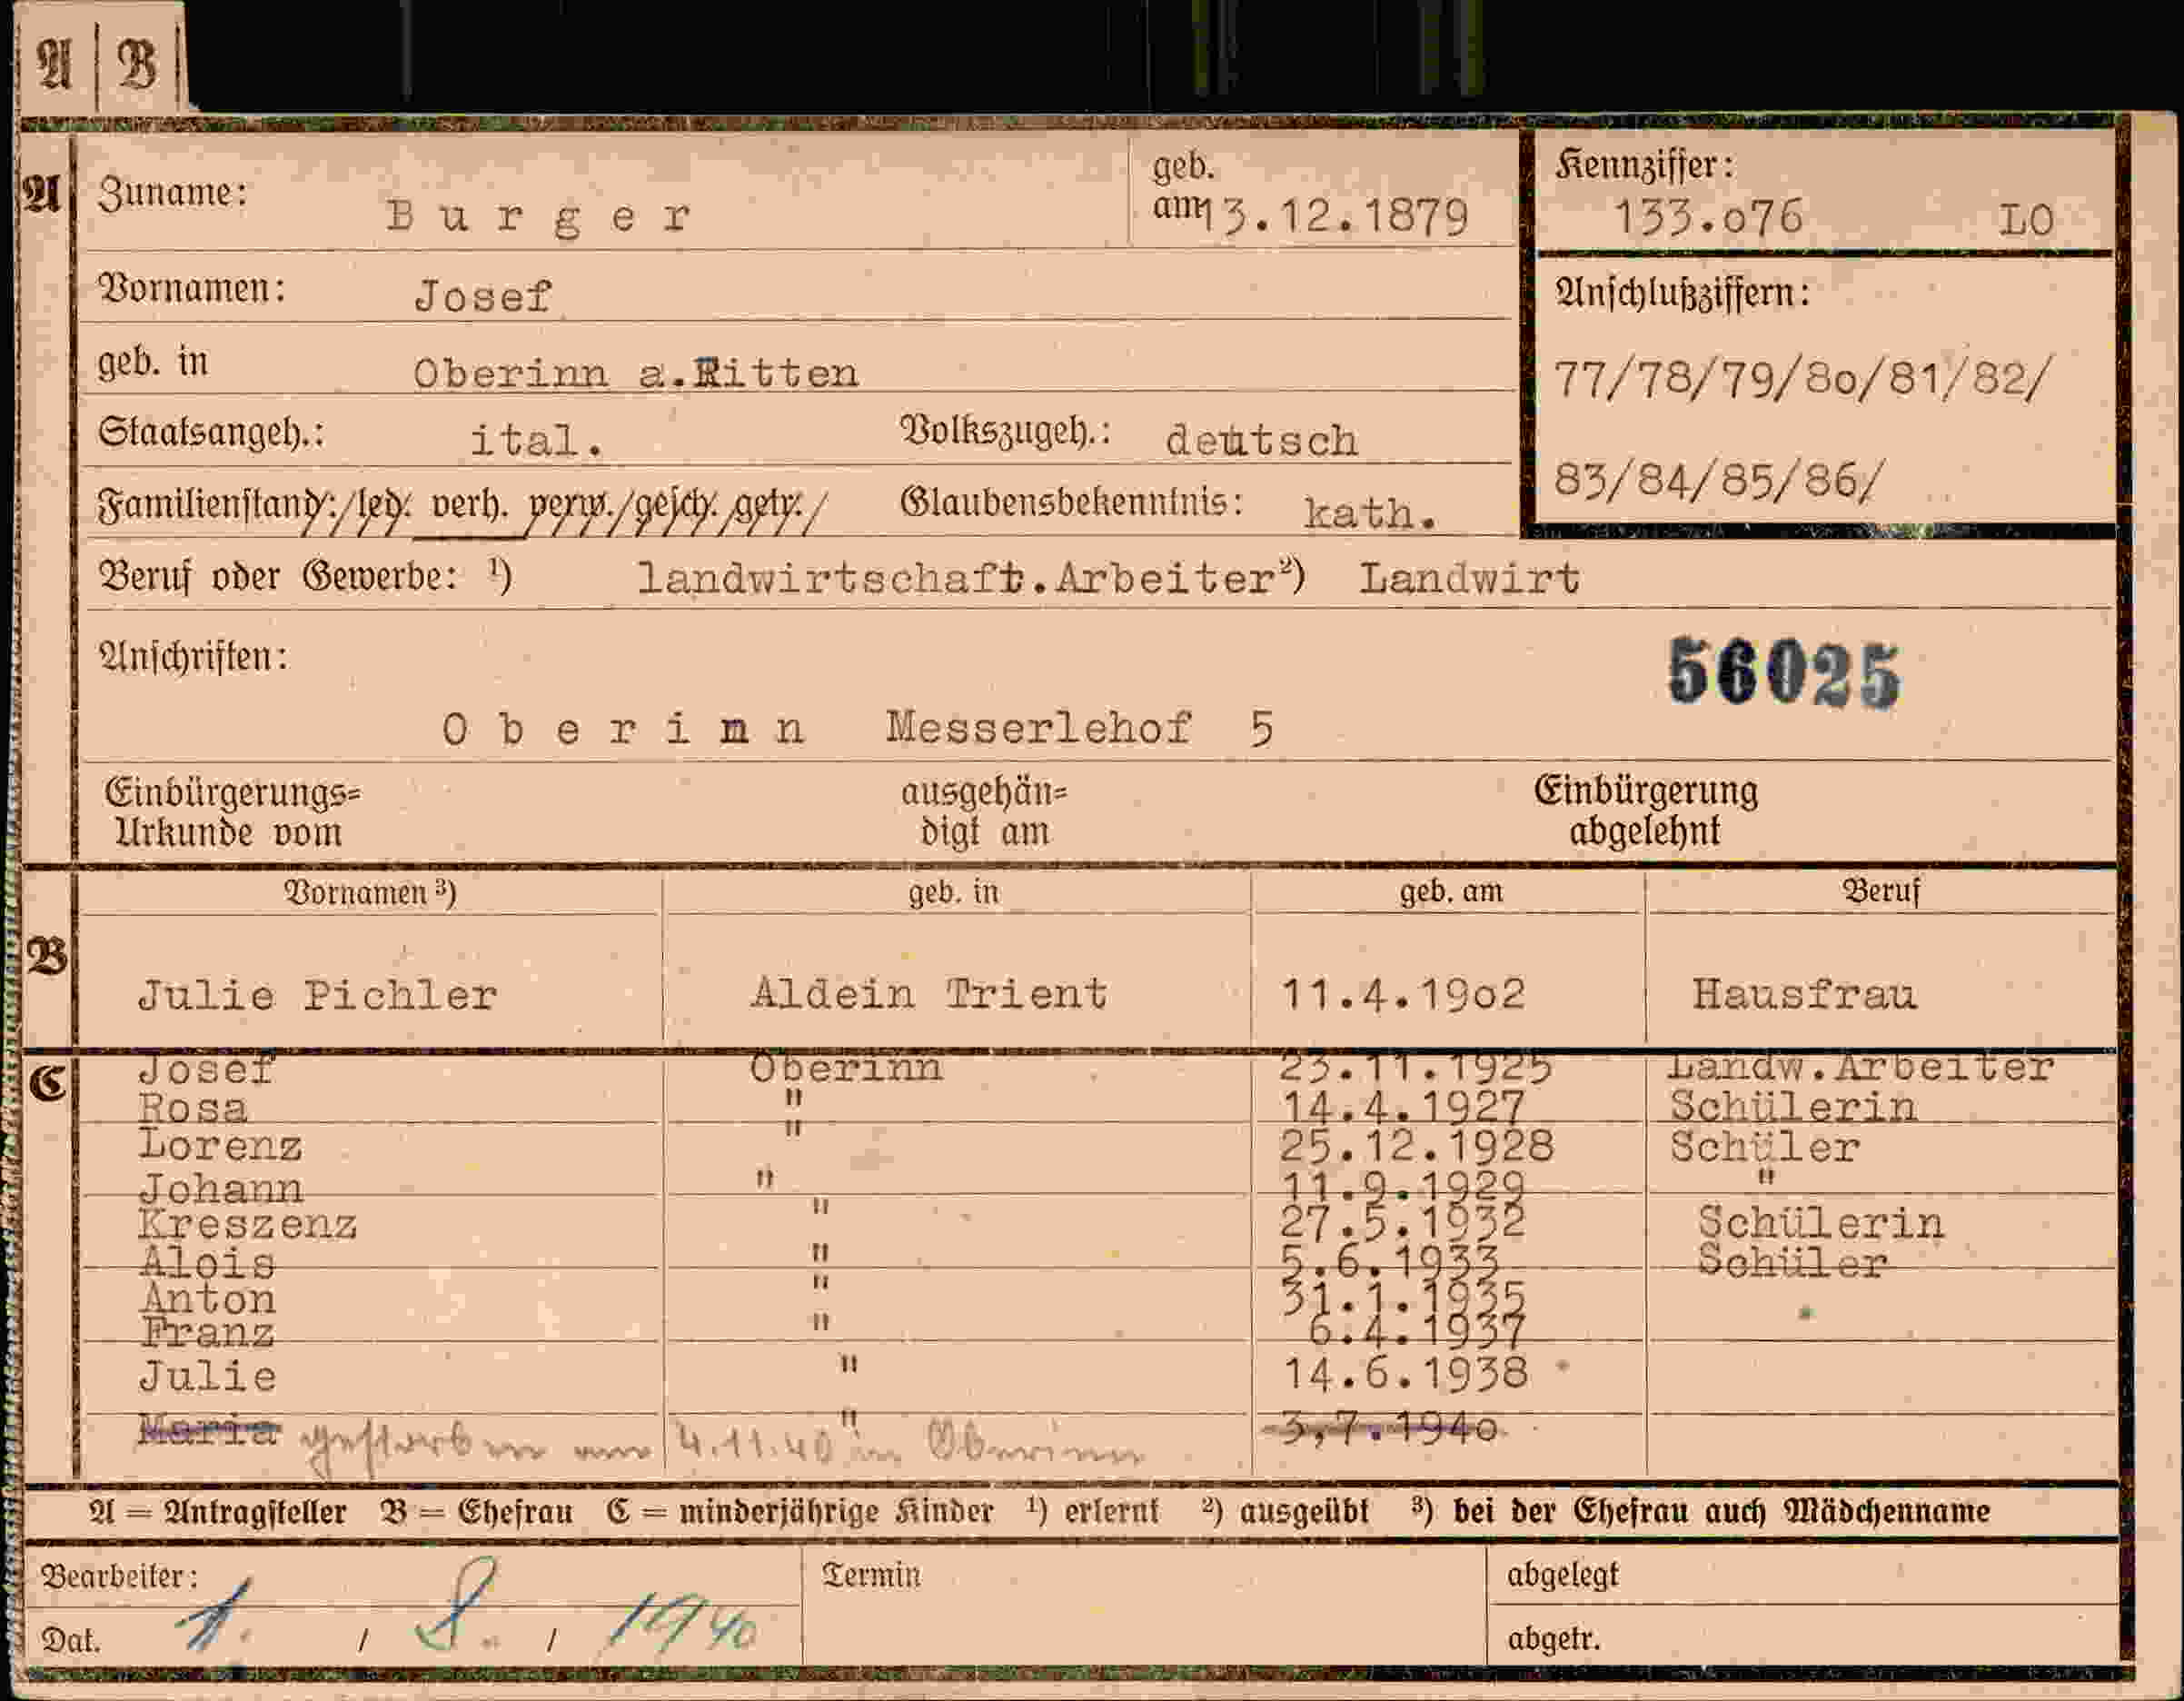 A | B
A Zuname: Burger geb. am 13.12.1879 Kennziffer: 133.o76 LO
Vornamen: Josef Anschlußziffern:
geb. in Oberinn a.Ritten 77/78/79/8o/81/82/
Staatsangeh.: ital. Volkszugeh.: deutsch
83/84/85/86/
Familienstand: led. verh. verw. gesch. getr. Glaubensbekenntnis: kath.
Beruf oder Gewerbe: ¹) landwirtschaft.Arbeiter ²) Landwirt
Anschriften: 56025
Oberinn Messerlehof 5
Einbürgerungs= ausgehän= Einbürgerung
Urkunde vom digt am abgelehnt
Vornamen ³) geb. in geb. am Beruf
B Julie Pichler Aldein Trient 11.4.19o2 Hausfrau
C Josef Oberinn 23.11.1925 Landw.Arbeiter
Rosa " 14.4.1927 Schülerin
Lorenz " 25.12.1928 Schüler
Johann " 11.9.1929 "
Kreszenz " 27.5.1932 Schülerin
Alois " 5.6.1933 Schüler
Anton " 31.1.1935
Franz " 6.4.1937
Julie " 14.6.1938
Maria " 3,7.194o
gestorben am 4.11.40 in Oberinn
A = Antragsteller B = Ehefrau C = minderjährige Kinder ¹) erlernt ²) ausgeübt ³) bei der Ehefrau auch Mädchenname
Bearbeiter: Termin abgelegt
Dat. 1. / 8. / 1940 abgetr.